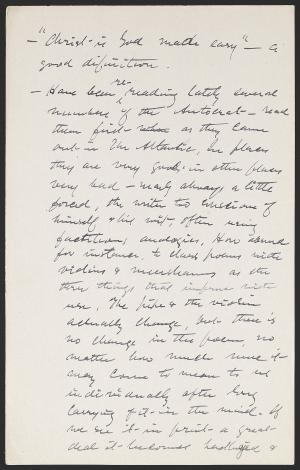 — "Christ is God made easy" — a
good difinition.
— Have been re-reading lately several
numbers of the Autocrat — read
them first when as they came
out in the Atlantic, in places
they are very good; in other places
very bad — nearly always a little
forced, the writer too conscious of
himself & his wit, often using
factitious analogies. How absurd
for instance, to class poems with
violins & meerschaums as the
three things that improve with
use. The pipe & the violin
actually change, but there is
no change in the poem, no
matter how much more it
may come to mean to us
individually after long
carrying it in the mind. If
we see it in print a great
deal it becomes hackneyed &